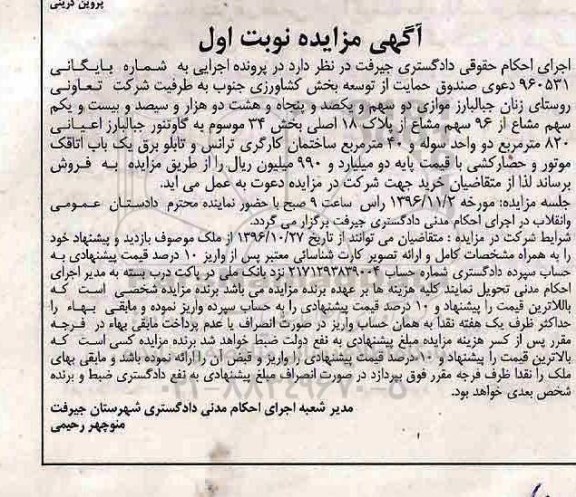 پروین دریتی
آگهی مزایده نوبت اول
اجرای احکام حقوقی دادگستری جیرفت در نظر دارد در پرونده اجرایی به شماره بایگانی
۹۶۰۵۳۱ دعوی صندوق حمایت از توسعه بخش کشاورزی جنوب به طرفیت شرکت تعاونی
روستای زنان جبالبارز موازی دو سهم و یکصد و پنجاه و هشت دو هزار و سیصد و بیست و یکم
سهم مشاع از ۹۶ سهم مشاع از پلاک ۱۸ اصلی بخش ۳۴ موسوم به گاوتنور جبالبارز اعیانی
۸۲۰ مترمربع دو واحد سوله و ۴۰ مترمربع ساختمان کارگری ترانس و تابلو برق یک باب اتاقک
موتور و حصارکشی با قیمت پایه دو میلیارد و ۹۹۰ میلیون ریال را از طریق مزایده به فروش
برساند لذا از متقاضیان خرید جهت شرکت در مزایده دعوت به عمل می آید.
جلسه مزایده: مورخه ۱۳۹۶/۱۱/۲ راس ساعت ۹ صبح با حضور نماینده محترم دادستان عمومی
وانقلاب در اجرای احکام مدنی دادگستری جیرفت برگزار می گردد.
شرایط شرکت در مزایده : متقاضیان می توانند از تاریخ ۱۳۹۶/۱۰/۲۷ از ملک موصوف بازدید و پیشنهاد خود
را به همراه مشخصات کامل و ارائه تصویر کارت شناسائی معتبر پس از واریز ۱۰ درصد قیمت پیشنهادی به
حساب سپرده دادگستری شماره حساب ۲۱۷۱۲۹۳۸۳۹۰۰۴ نزد بانک ملی در پاکت درب بسته به مدیر اجرای
احکام مدنی تحویل نمایند کلیه هزینه ها بر عهده برنده مزایده می باشد برنده مزایده شخصی است که
باللاترین قیمت را پیشنهاد و ۱۰ درصد قیمت پیشنهادی را به حساب سپرده واریز نموده و مابقی بهاء را
حداکثر ظرف یک هفته نقدا به همان حساب واریز در صورت انصراف یا عدم پرداخت مابقی بهاء در فرجه
مقرر پس از کسر هزینه مزایده مبلغ پیشنهادی به نفع دولت ضبط خواهد شد برنده مزایده کسی است که
بالاترین قیمت را پیشنهاد و ۱۰درصد قیمت پیشنهادی را واریز و قبض ان را ارائه نموده باشد و مابقی بهای
ملک را نقدا ظرف فرجه مقرر فوق بپردازد در صورت انصراف مبلغ پیشنهادی به نفع دادگستری ضبط و برنده
شخص بعدی خواهد بود.
مدیر شعبه اجرای احکام مدنی دادگستری شهرستان جیرفت
منوچهر رحیمی